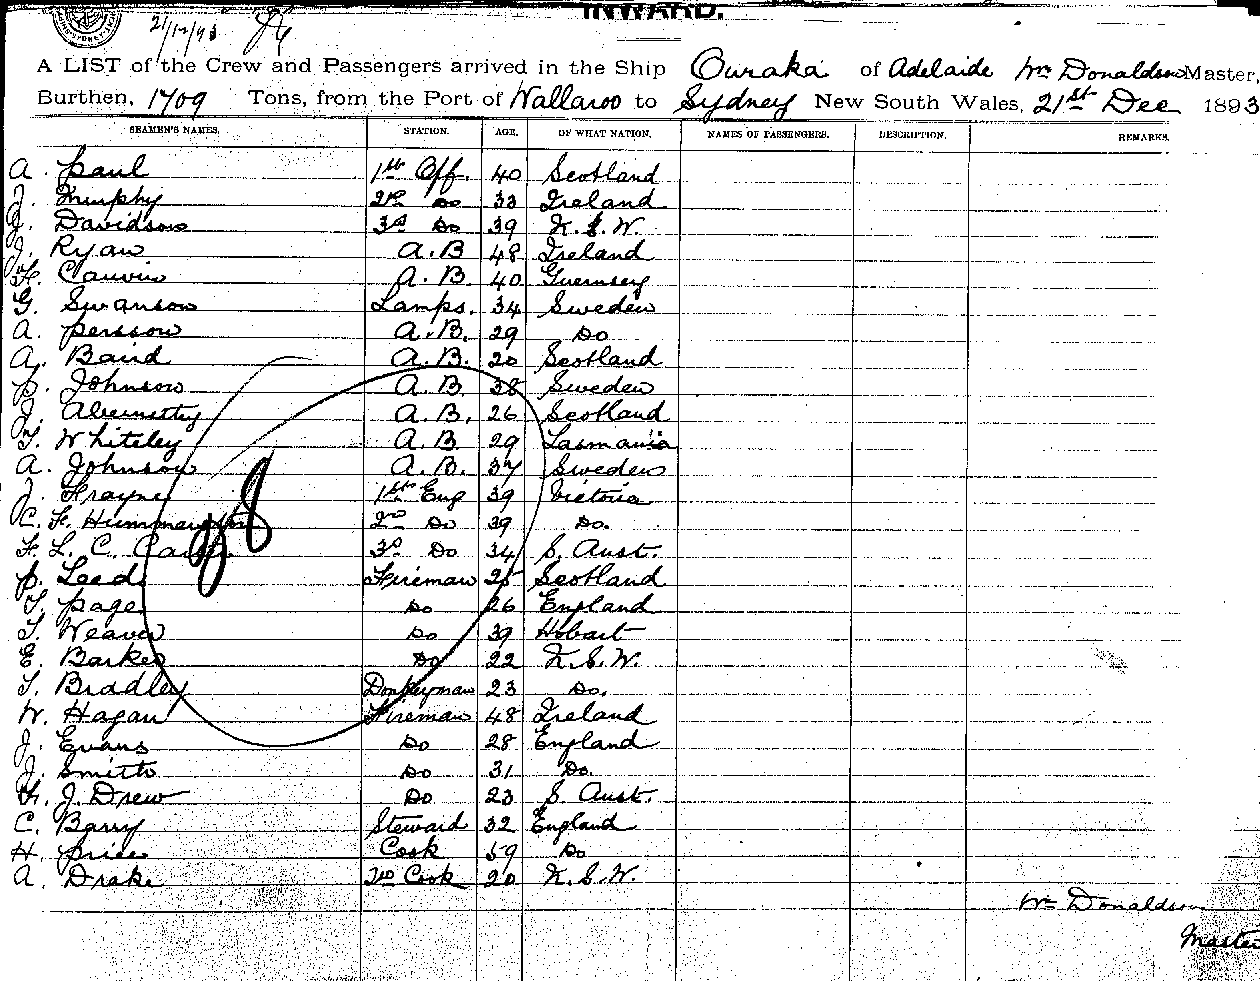 21/12/93
INWARD.
A LIST of the Crew and Passengers arrived in the Ship Ouraka of Adelaide Wm Donaldson Master,
Burthen, 1709 Tons, from the Port of Wallaroo to Sydney New South Wales, 21st Dec 1893
SEAMEN'S NAMES. STATION. AGE. OF WHAT NATION. NAMES OF PASSENGERS. DESCRIPTION. REMARKS.
A. Paul 1st Off. 40 Scotland
J. Murphy 2nd Do 33 Ireland
J. Davidson 3rd Do 39 N.S.W.
J. Ryan A.B 48 Ireland
A.B. 40 Guernsey
G. Swanson Lamps. 34 Sweden
A. Persson A.B. 29 Do
A. Baird A.B. 20 Scotland
P. Johnson A.B. 38 Sweden
J. Abernethy A.B. 26 Scotland
T. Whiteley A.B 29 Tasmania
A. Johnson A.B. 37 Sweden
J. Frayne 1st Eng 39 Victoria
C. F. 2nd Do 39 Do.
F. L. C. 3rd Do 34 S. Aust.
P. Leeds Fireman 25 Scotland
T. Page Do 26 England
T. Weaver Do 39 Hobart
E. Barker Do 22 N.S.W.
T. Bradley Donkeyman 23 Do.
W. Hagan Fireman 48 Ireland
J. Evans Do 28 England
J. Smith Do 31 Do.
F. J. Drew Do 23 S. Aust.
C. Barry Steward 32 England
H. Price Cook 59 Do
A. Drake 2nd Cook 20 N.S.W.
Wm Donaldson
Master